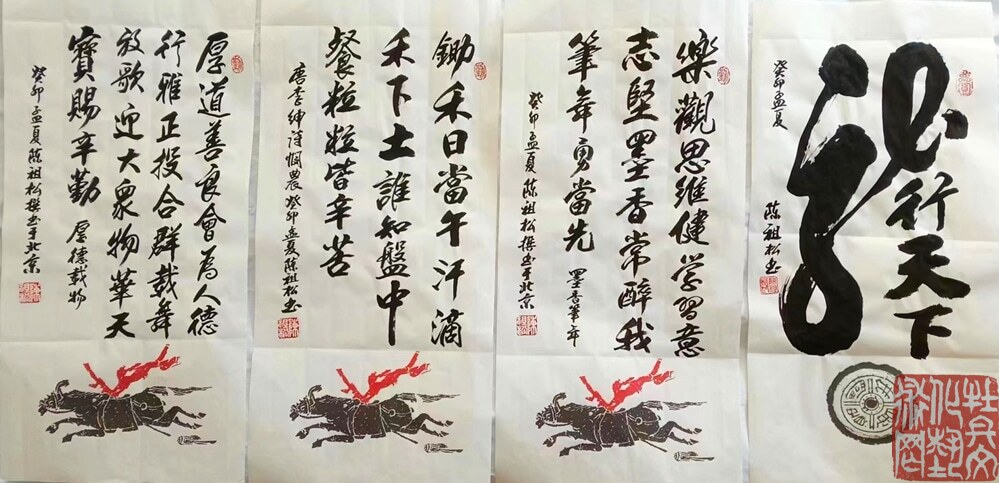 龍行天下
癸卯孟夏
陈祖松书
樂觀思維健学習意
志堅墨香常醉我
筆舞勇當先
癸卯孟夏陈祖松撰书于北京
鋤禾日當午汗滴
禾下土誰知盤中
餐粒粒皆辛苦
唐李绅诗悯農癸卯孟夏陈祖松书
厚道善良會為人德
行雅正投合群载舞
放歌迎大衆物華天
寶賜辛勤 厚德载物
癸卯孟夏陈祖松撰书于北京